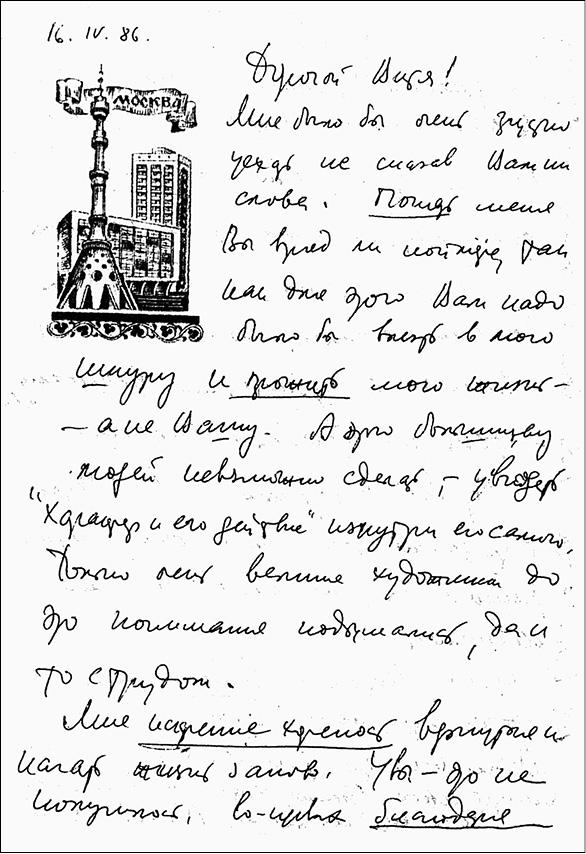 16. IV. 86.
МОСКВА
Дорогой Витя!
Мне было бы очень трудно
уехать не сказав Вам ни
слова. Понять меня
Вы вряд ли поймете, так
как для этого Вам надо
было бы влезть в мою
шкуру и прожить мою жизнь –
– а не Вашу. А это большинству
людей невозможно сделать, – увидеть
"характер и его действие" изнутри его самого.
Только очень великие художники до
это понимания подымались, да и
то с трудом.
Мне искренне хотелось вернуться и
начать жизнь заново. Увы – это не
получилось, во-первых благодаря